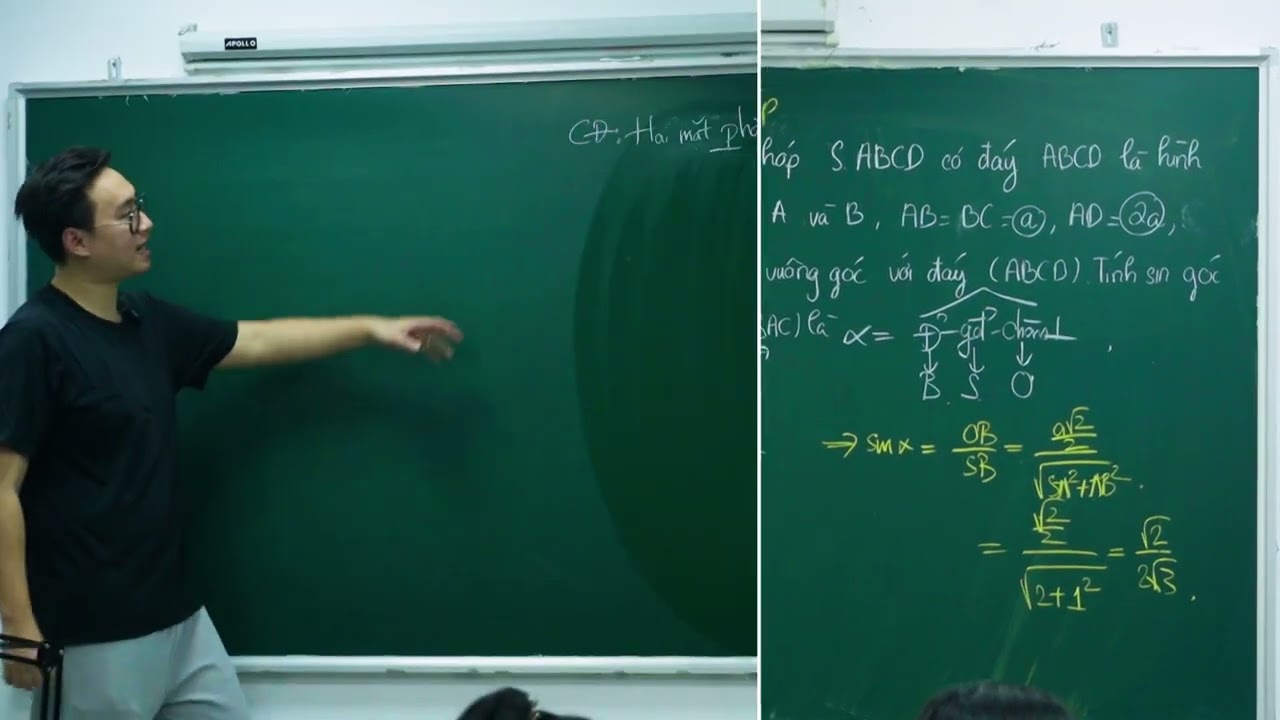 APOLLO
CĐ: Hai mặt phẳ
P
hóp S.ABCD có đáy ABCD là hình
A và B, AB = BC = a, AD = 2a,
vuông góc với đáy (ABCD). Tính sin góc
AC) là α = Đ - gđ - chân ⊥
B S O
→ sin α = OB/SB = (a√2/2)/√(SA²+AB²).
= (√2/2)/√(2+1²) = √2/(2√3).